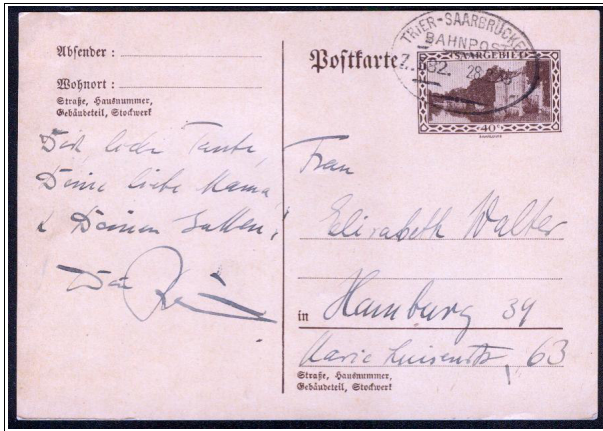 Absender :
Wohnort :
Straße, Hausnummer,
Gebäudeteil, Stockwerk
Dich liebe Tante,
Deine liebe Mama
& Deinen Gatten!
Dein
Postkarte
TRIER-SAARBRÜCKEN
BAHNPOST
Z. 28
SAARGEBIET
40
Frau
Elisabeth Walter
in Hamburg 39
Marie Luisenstr 63
Straße, Hausnummer,
Gebäudeteil, Stockwerk